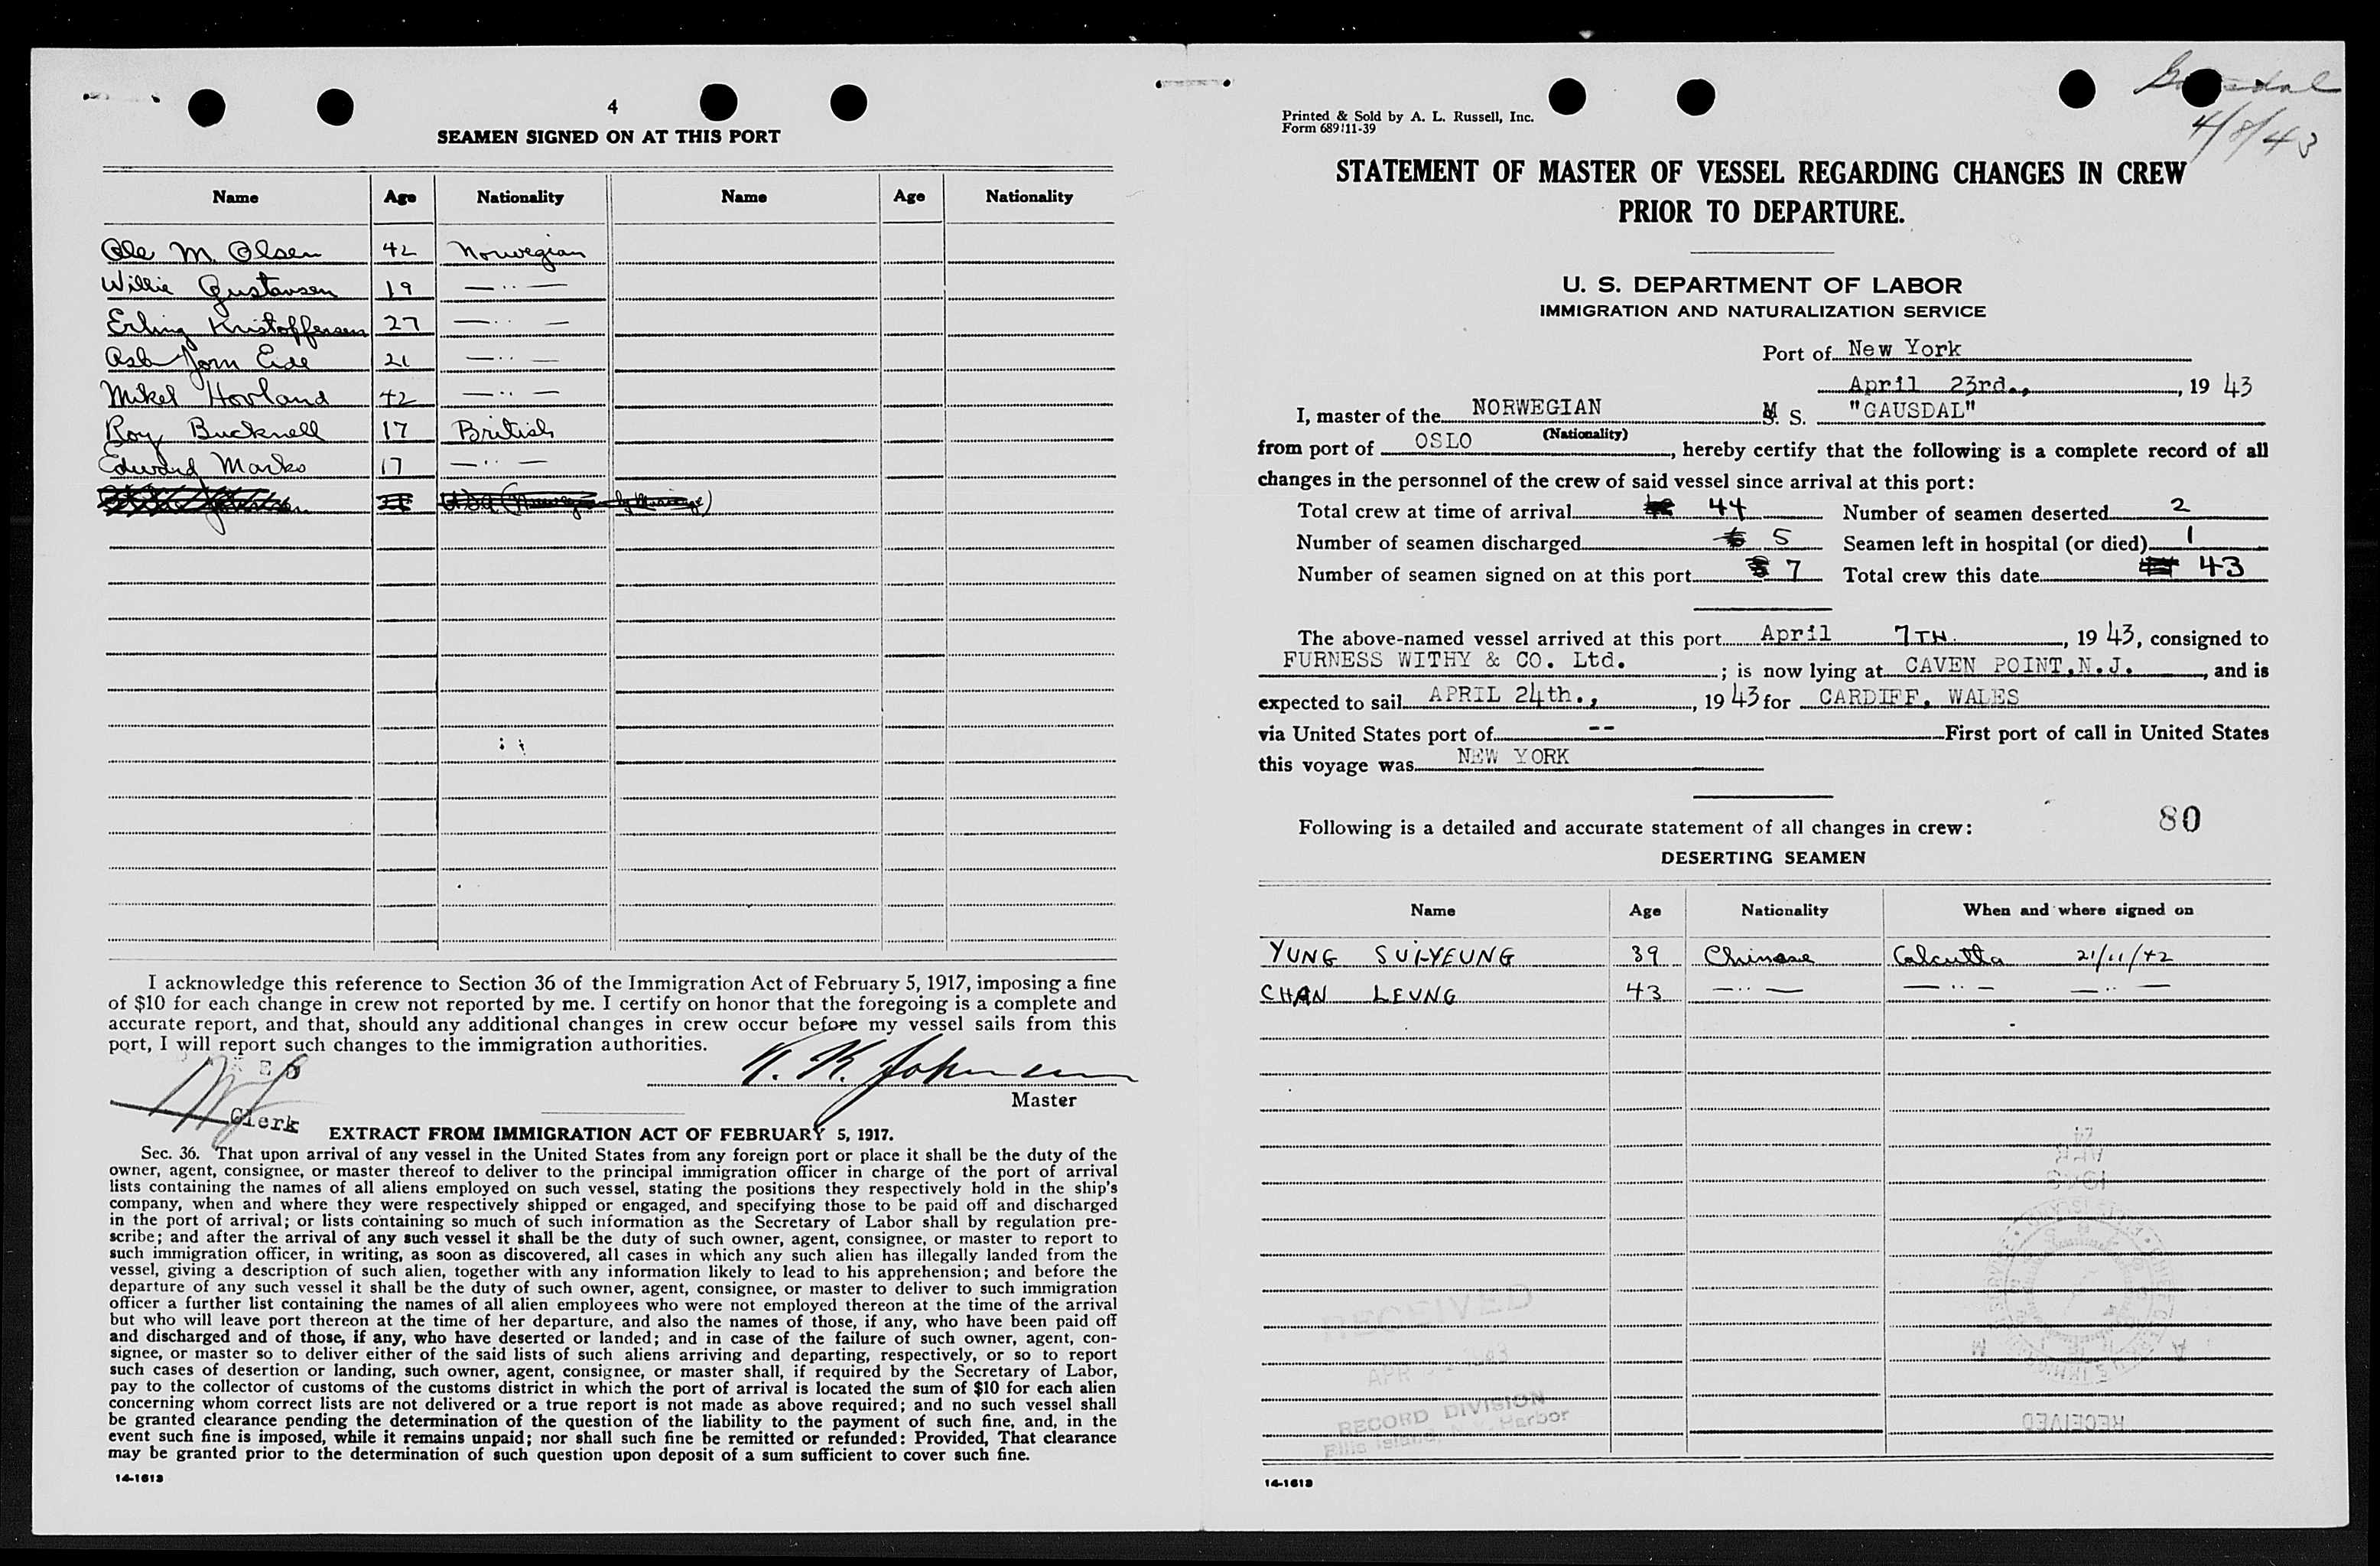 4
SEAMEN SIGNED ON AT THIS PORT
Name Age Nationality Name Age Nationality
Ole M. Olsen 42 Norwegian
Willie Gustavsen 19 — ·· —
Erling Kristoffersen 27 — ·· —
Asbjorn Eide 21 — ·· —
Mikel Hovland 42 — ·· —
Roy Bucknell 17 British
Edward Marks 17 — ·· —
I acknowledge this reference to Section 36 of the Immigration Act of February 5, 1917, imposing a fine
of $10 for each change in crew not reported by me. I certify on honor that the foregoing is a complete and
accurate report, and that, should any additional changes in crew occur before my vessel sails from this
port, I will report such changes to the immigration authorities.
Master
Clerk
EXTRACT FROM IMMIGRATION ACT OF FEBRUARY 5, 1917.
Sec. 36. That upon arrival of any vessel in the United States from any foreign port or place it shall be the duty of the
owner, agent, consignee, or master thereof to deliver to the principal immigration officer in charge of the port of arrival
lists containing the names of all aliens employed on such vessel, stating the positions they respectively hold in the ship's
company, when and where they were respectively shipped or engaged, and specifying those to be paid off and discharged
in the port of arrival; or lists containing so much of such information as the Secretary of Labor shall by regulation pre-
scribe; and after the arrival of any such vessel it shall be the duty of such owner, agent, consignee, or master to report to
such immigration officer, in writing, as soon as discovered, all cases in which any such alien has illegally landed from the
vessel, giving a description of such alien, together with any information likely to lead to his apprehension; and before the
departure of any such vessel it shall be the duty of such owner, agent, consignee, or master to deliver to such immigration
officer a further list containing the names of all alien employees who were not employed thereon at the time of the arrival
but who will leave port thereon at the time of her departure, and also the names of those, if any, who have been paid off
and discharged and of those, if any, who have deserted or landed; and in case of the failure of such owner, agent, con-
signee, or master so to deliver either of the said lists of such aliens arriving and departing, respectively, or so to report
such cases of desertion or landing, such owner, agent, consignee, or master shall, if required by the Secretary of Labor,
pay to the collector of customs of the customs district in which the port of arrival is located the sum of $10 for each alien
concerning whom correct lists are not delivered or a true report is not made as above required; and no such vessel shall
be granted clearance pending the determination of the question of the liability to the payment of such fine, and, in the
event such fine is imposed, while it remains unpaid; nor shall such fine be remitted or refunded: Provided, That clearance
may be granted prior to the determination of such question upon deposit of a sum sufficient to cover such fine.
14-1613
4/8/43
Printed & Sold by A. L. Russell, Inc.
Form 689 11-39
STATEMENT OF MASTER OF VESSEL REGARDING CHANGES IN CREW
PRIOR TO DEPARTURE.
U. S. DEPARTMENT OF LABOR
IMMIGRATION AND NATURALIZATION SERVICE
Port of New York
April 23rd., , 19 43
I, master of the NORWEGIAN M S. "GAUSDAL"
(Nationality)
from port of OSLO , hereby certify that the following is a complete record of all
changes in the personnel of the crew of said vessel since arrival at this port:
Total crew at time of arrival 44 Number of seamen deserted 2
Number of seamen discharged 5 Seamen left in hospital (or died) 1
Number of seamen signed on at this port 7 Total crew this date 43
The above-named vessel arrived at this port April 7TH. , 19 43, consigned to
FURNESS WITHY & CO. Ltd. ; is now lying at CAVEN POINT,N.J. , and is
expected to sail APRIL 24th., , 19 43 for CARDIFF, WALES
via United States port of -- First port of call in United States
this voyage was NEW YORK
Following is a detailed and accurate statement of all changes in crew: 80
DESERTING SEAMEN
Name Age Nationality When and where signed on
YUNG SUI-YEUNG 39 Chinese Calcutta 21/11/42
CHAN LEUNG 43 — ·· — — ·· — — ·· —
RECEIVED
APR 1943
RECORD DIVISION
Ellis Island, N.Y. Harbor
RECEIVED
14-1613